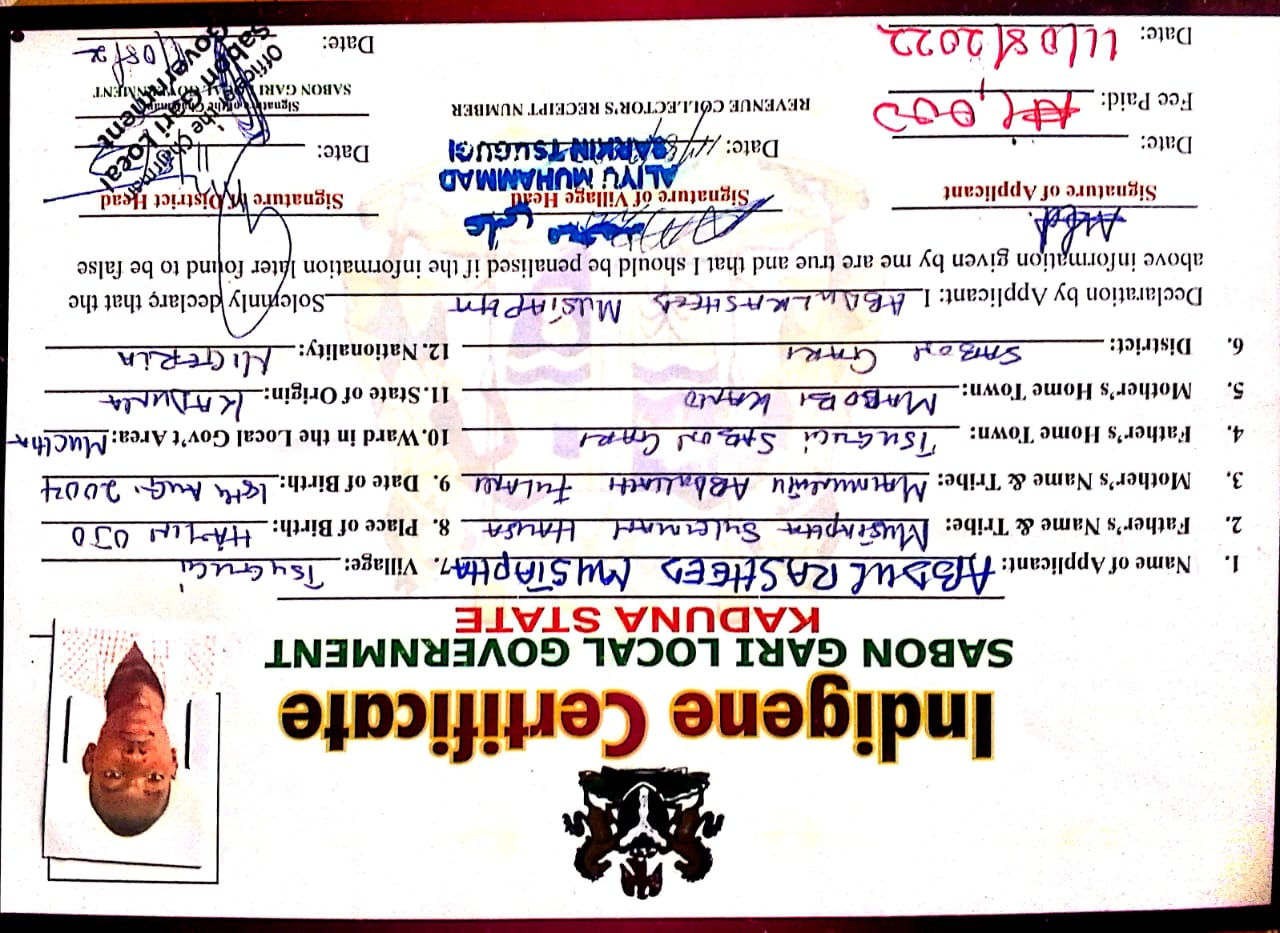 Indigene Certificate
SABON GARI LOCAL GOVERNMENT
KADUNA STATE
1. Name of Applicant: ABDULRASHEED MUSTAPHA 7. Village: TSUGUGI
2. Father's Name & Tribe: MUSTAPHA SULEIMAN HAUSA 8. Place of Birth: HAYIN OJO
3. Mother's Name & Tribe: ABDULLAHI FULANI 9. Date of Birth: AUG. 2004
4. Father's Home Town: TSUGUGI SABON GARI 10. Ward in the Local Gov't Area: MUCHIA
5. Mother's Home Town: KANO 11. State of Origin: KADUNA
6. District: SABON GARI 12. Nationality: NIGERIA
Declaration by Applicant: I ABDULRASHEED MUSTAPHA Solemnly declare that the
above information given by me are true and that I should be penalised if the information later found to be false
Signature of Applicant Signature of Village Head Signature of District Head
ALIYU MUHAMMAD
SARKIN TSUGUGI
Date: Date: Date: 11
Fee Paid:
REVENUE COLLECTOR'S RECEIPT NUMBER
Signature of the Chairman
SABON GARI LOCAL GOVERNMENT
Office of the Chairman
Sabon Gari Local
Government
Date: 11/08/2022 Date: